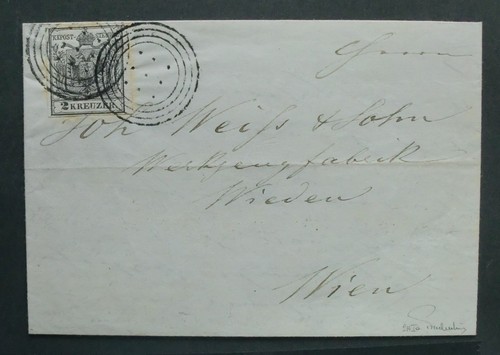 KKPOST-STEMPEL
2 KREUZER
Herrn
Joh Weiß & Sohn
Werkzeugfabrik
Wieden
Wien